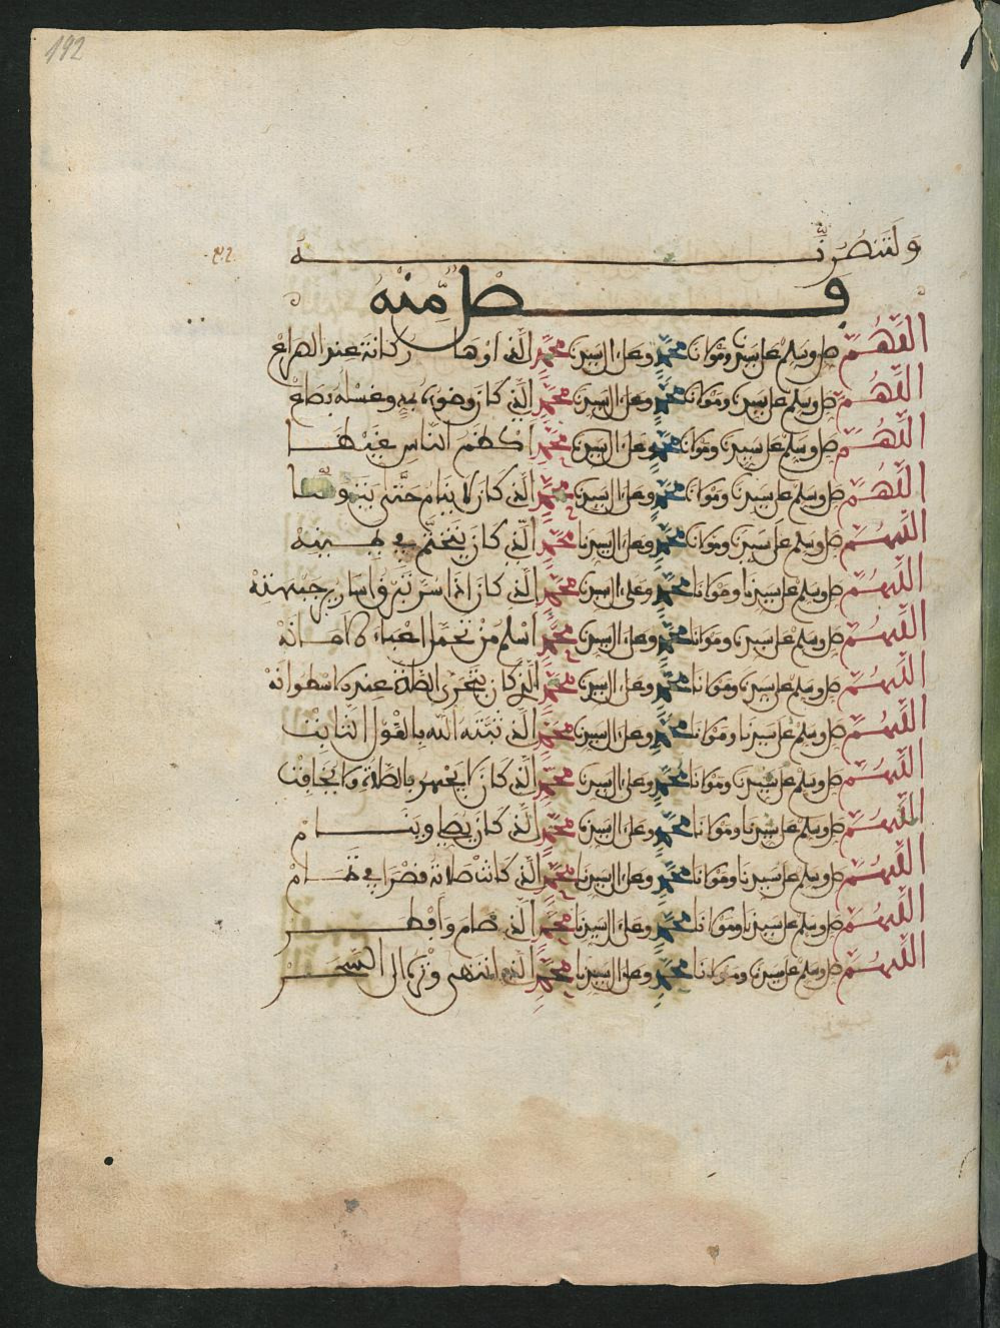 192
وَلَتَنصُرُنَّهُ
فصل مِّنْهُ
اللَّهُمَّ صل وسلم على سيدنا ومولانا محمد وعلى ال سيدنا محمد الذي كانه عند
اللَّهُمَّ صل وسلم على سيدنا ومولانا محمد وعلى ال سيدنا محمد الذي كان وضوءه بمد وغسله بصاع
اللَّهُمَّ صل وسلم على سيدنا ومولانا محمد وعلى ال سيدنا محمد اكظم الناس غيظا
اللَّهُمَّ صل وسلم على سيدنا ومولانا محمد وعلى ال سيدنا محمد الذي كان لا ينام حَتَّى يتوضأ
اللهم صل وسلم على سيدنا ومولانا محمد وعلى ال سيدنا محمد الذي كان يتختّم في يمينه
اللهم صل وسلم على سيدنا ومولانا محمد وعلى ال سيدنا محمد الذي كان اذا استن
اللهم صل وسلم على سيدنا ومولانا محمد وعلى ال سيدنا محمد من تحمل اعباء الامانه
اللهم صل وسلم على سيدنا ومولانا محمد وعلى ال سيدنا محمد الذي كان يتحرى الصلاة عند الاسطوانه
اللهم صل وسلم على سيدنا ومولانا محمد وعلى ال سيدنا محمد الذي ثبّته الله بالقول الثابت
اللهم صل وسلم على سيدنا ومولانا محمد وعلى ال سيدنا محمد الذي كان لا يجهر بالصلاة ولا يخافت
اللهم صل وسلم على سيدنا ومولانا محمد وعلى ال سيدنا محمد الذي كان يصلي وينام
اللهم صل وسلم على سيدنا ومولانا محمد وعلى ال سيدنا محمد الذي كانت صلاته قصرا في تمام
اللهم صل وسلم على سيدنا ومولانا محمد وعلى ال سيدنا محمد الذي صام وأفطر
اللهم صل وسلم على سيدنا ومولانا محمد وعلى ال سيدنا محمد الذي انتهى وتره الى السحر